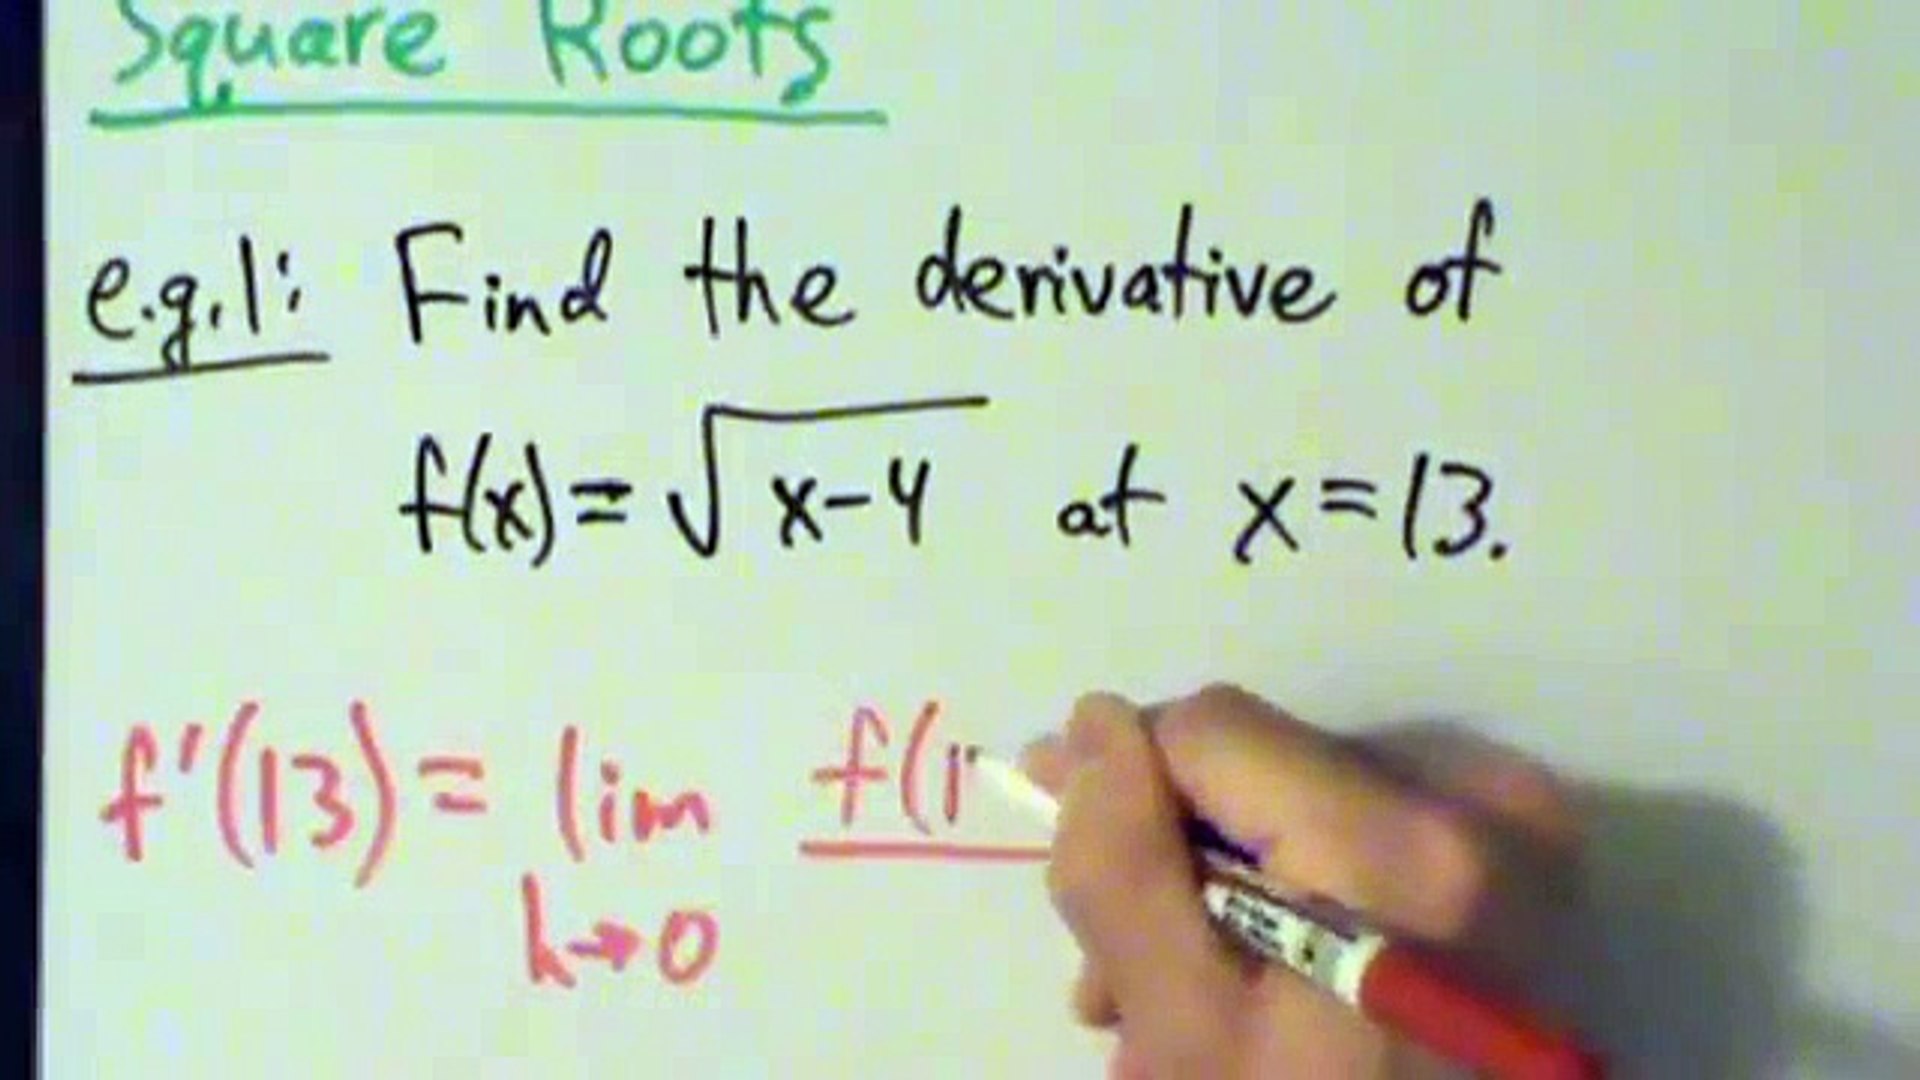 Square Roots
e.g.1: Find the derivative of
f(x) = √x-4 at x = 13.
f'(13) = lim f(1
h→0